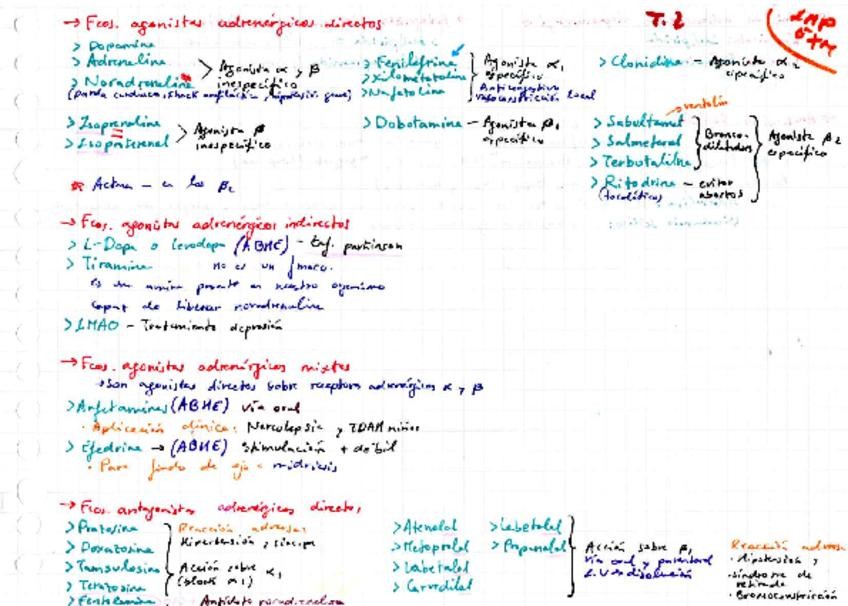 T.2
IMP
→ Fcos. agonistas adrenérgicos directos
> Dopamina
> Adrenalina
> Noradrenalina
Agonista α y β
inespecífico
> Fenilefrina
> Xilometatolina
> Nafatolina
Agonista α1
específico
Anticongestivo
vasoconstricción local
> Clonidina - Agonista α2
específico
> Isoprenalina
> Isoproterenol
Agonista β
inespecífico
> Dobotamina - Agonista β1
específico
ventolín
> Salbutamol
> Salmeterol
> Terbutalina
Bronco-
dilatadores
> Ritodrina - evitar
(tocolíticos) abortos
Agonista β2
específico
* Actua - en los β2
→ Fcos. agonistas adrenérgicos indirectos
> L-Dopa o Levodopa (ABHE) - Enf. parkinson
> Tiramina no es un fármaco.
Es una amina presente en nuestro organismo
capaz de liberar noradrenalina
> IMAO - Tratamiento depresión
→ Fcos. agonistas adrenérgicos mixtos
→ Son agonistas directos sobre receptores adrenérgicos α y β
> Anfetaminas (ABHE) Vía oral
· Aplicación clínica: Narcolepsia y TDAH niños
> Efedrina → (ABHE) Stimulación + débil
· Para fondo de ojo = midriasis
→ Fcos. antagonistas adrenérgicos directos
> Prazosina
> Doxazosina
> Tamsulosina
> Terazosina
> Fentolamina
Reacción adversa:
Hipertensión y síncope
Acción sobre α1
(block α1)
Antídoto noradrenalina
> Atenolol
> Metoprolol
> Labetalol
> Carvedilol
> Labetalol
> Propanolol
Acción sobre β1
Vía oral y parenteral
I.V → disolución
Reacción adversa
· Hipotensión y
· síndrome de
retirada
· Broncoconstricción